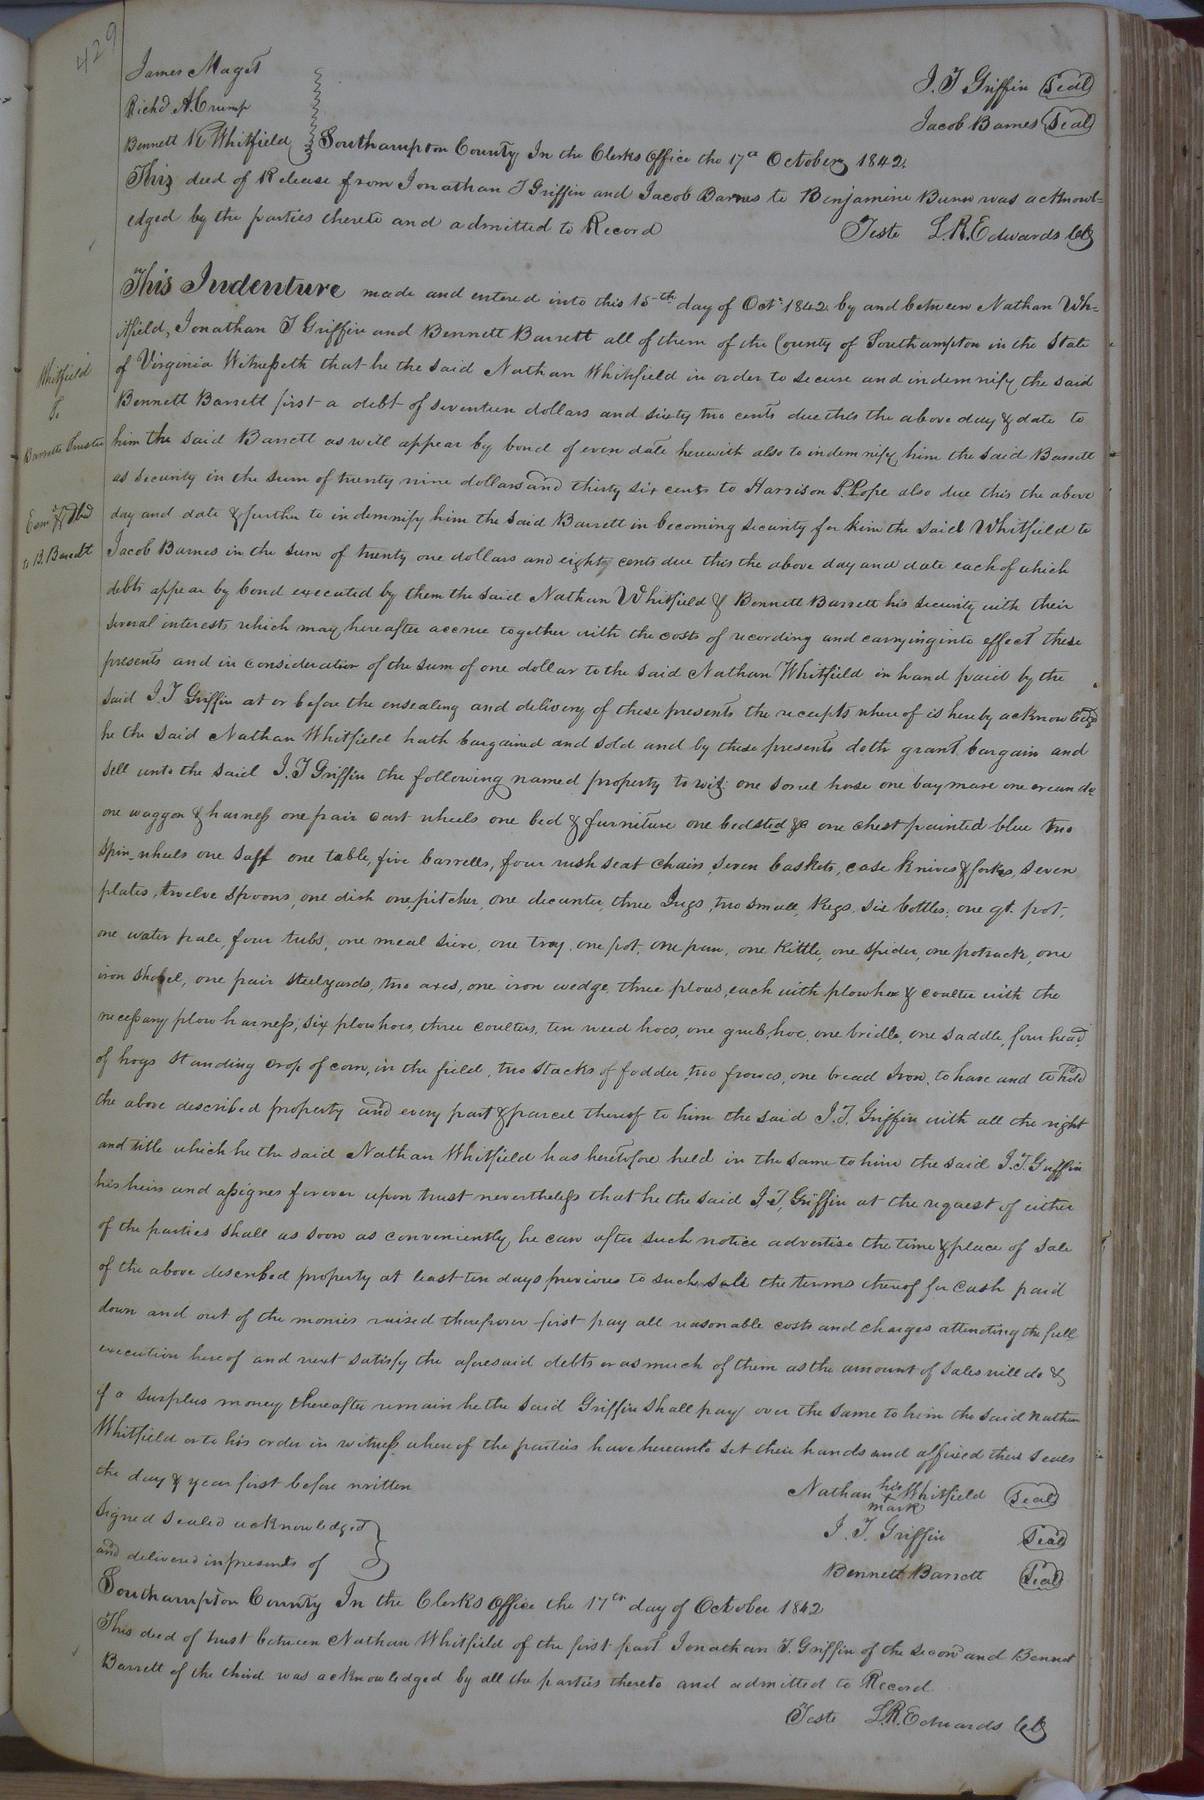 429
James Maget
J. T Griffin Seal
Richd A. Crump
Jacob Barnes Seal
Bennett K Whitfield Southampton County In the Clerks Office the 17th October 1842
This deed of Release from Jonathan T Griffin and Jacob Barnes to Benjamine Bunn was acknowl=
edged by the parties thereto and admitted to Record
Teste L.R. Edwards Clk
This Indenture made and entered into this 15th day of Oct: 1842 by and between Nathan Wh=
itfield, Jonathan T Griffin and Bennett Barrett all of them of the County of Southampton in the State
of Virginia Witnesseth that he the said Nathan Whitfield in order to secure and indemnify the said
Bennett Barrett first a debt of seventeen dollars and sixty two cents due this the above day & date to
him the said Barrett as will appear by bond of even date herewith also to indemnify him the said Barrett
as security in the sum of twenty nine dollars and thirty six cents to Harrison P. Pope also due this the above
day and date & further to indemnify him the said Barrett in becoming security for him the said Whitfield to
Jacob Barnes in the sum of twenty one dollars and eighty cents due this the above day and date each of which
debts appear by bond executed by them the said Nathan Whitfield & Bennett Barrett his security with their
several interests which may hereafter accrue together with the costs of recording and carrying into effect these
presents and in consideration of the sum of one dollar to the said Nathan Whitfield in hand paid by the
said J. T Griffin at or before the ensealing and delivery of these presents the receipts whereof is hereby acknowledg
he the said Nathan Whitfield hath bargained and sold and by these presents doth grant bargain and
sell unto the said J. T Griffin the following named property to wit; one sorrel horse one bay mare one
one waggon & harness one pair cart wheels one bed & furniture one bedsted &c one chest painted blue two
spin-wheels one saff one table, five barrells, four rush seat chairs, seven baskets, case knives & forks, seven
plates, twelve spoons, one dish one pitcher, one decanter, three Jugs, two small Kegs, six bottles, one qt. pot,
one water pale, four tubs, one meal sieve, one tray, one pot, one pan, one Kittle, one spider, one potrack, one
iron shovel, one pair steelyards, two axes, one iron wedge, three plows, each with plowhoe & coulter with the
necessary plow harness, six plowhoes, three coulters, ten weed hoes, one grub hoe, one bridle, one saddle, four head
of hogs standing crop of corn, in the field, two stacks of fodder, two frowes, one bread Iron, to have and to hold
the above described property and every part & parcel thereof to him the said J. T. Griffin with all the right
and title which he the said Nathan Whitfield has heretofore held in the same to him the said J. T. Griffin
his heirs and assignes forever upon trust nevertheless that he the said J, T, Griffin at the request of either
of the parties shall as soon as conveniently he can after such notice advertise the time & place of sale
of the above described property at least ten days previous to such sale the terms thereof for Cash paid
down and out of the monies raised therefrom first pay all reasonable costs and charges attending the full
execution hereof and next satisfy the aforesaid debts or as much of them as the amount of sales will do &
if a surplus money thereafter remain he the said Griffin shall pay over the same to him the said Nathan
Whitfield or to his order in witness whereof the parties have hereunto set their hands and affixed their seals
the day & year first before written
Nathan his x mark Whitfield Seal
Signed sealed acknowledged
J. T. Griffin Seal
and delivered in presents of
Bennett Barrett Seal
Southampton County In the Clerks Office the 17th day of October 1842
This deed of trust between Nathan Whitfield of the first part Jonathan T. Griffin of the second and Bennet
Barrett of the third was acknowledged by all the parties thereto and admitted to Record
Teste L.R. Edwards Clk
Whitfield
To
Barretts Trustee
to B. Barrett